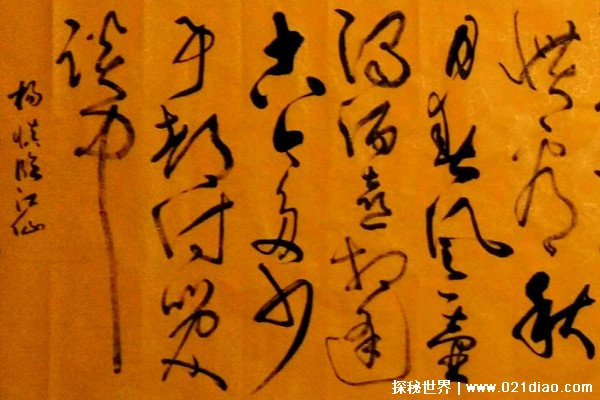 慣看秋
月春風一壺
濁酒喜相逢
古今多少
事都付笑
談中
楊慎臨江仙
探秘世界 | www.021diao.com